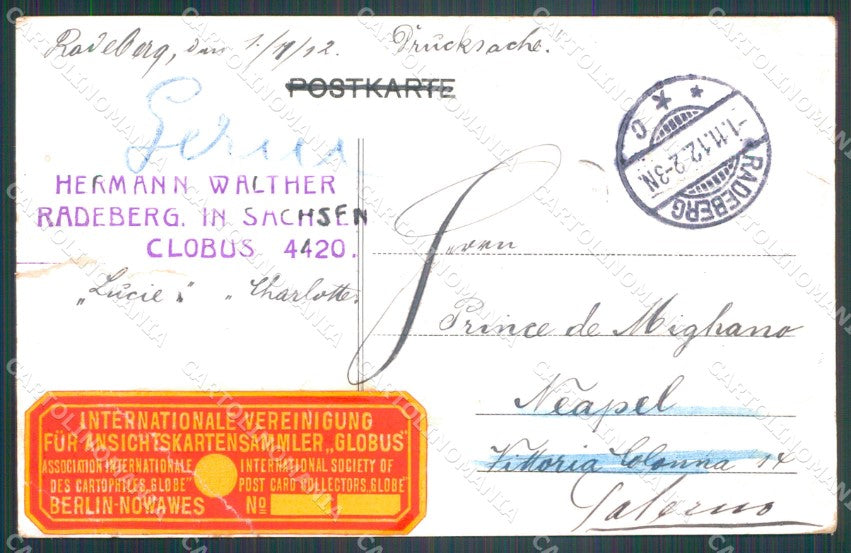 Radeberg, den 1./11/12. Drucksache.
POSTKARTE
HERMANN WALTHER
RADEBERG. IN SACHSEN
CLOBUS 4420.
"Lucie" "Charlotte"
RADEBERG
-1.11.12.2-3N.
* * c
Herrn
Prince de Mighano
Neapel
Vittoria Colonna 14
Salerno
INTERNATIONALE VEREINIGUNG
FÜR ANSICHTSKARTENSAMMLER „GLOBUS"
ASSOCIATION INTERNATIONALE
DES CARTOPHILES „GLOBE"
INTERNATIONAL SOCIETY OF
POST CARD COLLECTORS „GLOBE"
BERLIN-NOWAWES
No
CARTOLINOMANIA